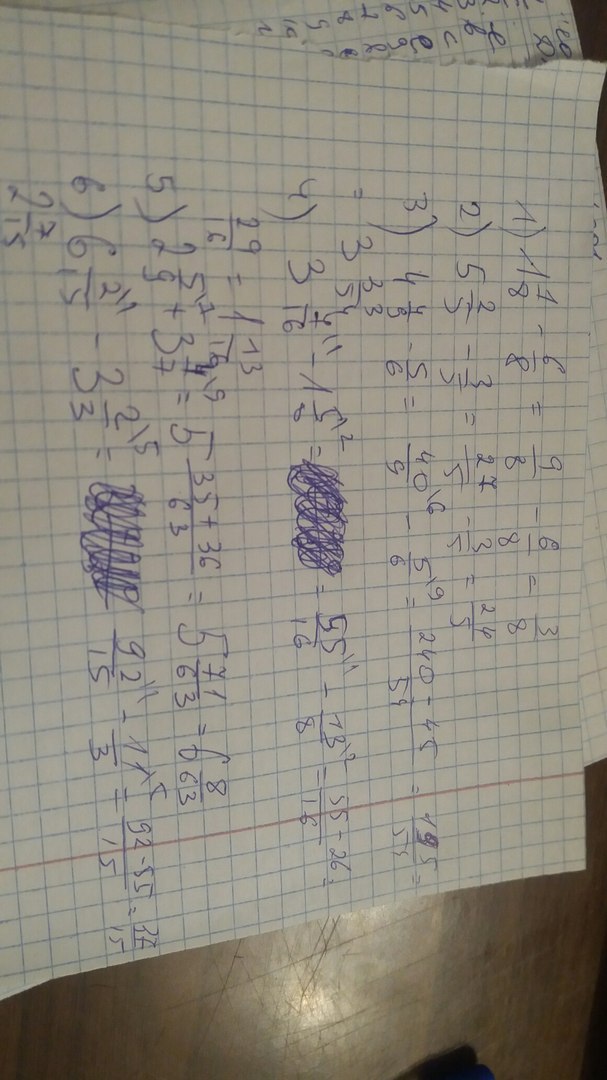 1) 1 1/8 - 6/8 = 9/8 - 6/8 = 3/8
2) 5 2/5 - 3/5 = 27/5 - 3/5 = 24/5
3) 4 4/9 - 5/6 = 40/9 \6 - 5/6 \9 = 240-45/54 = 195/54 =
= 3 33/54
4) 3 7/16 \1 - 1 5/8 \2 = = 55/16 \1 - 13/8 \2 = 55-26/16
29/16 = 1 13/16
5) 2 5/9 \7 + 3 4/7 \9 = 5 35+36/63 = 5 71/63 = 6 8/63
6) 6 2/15 \1 - 3 2/3 \5 = 92/15 \1 - 11/3 \5 = 92-55/15 = 37/15
2 7/15